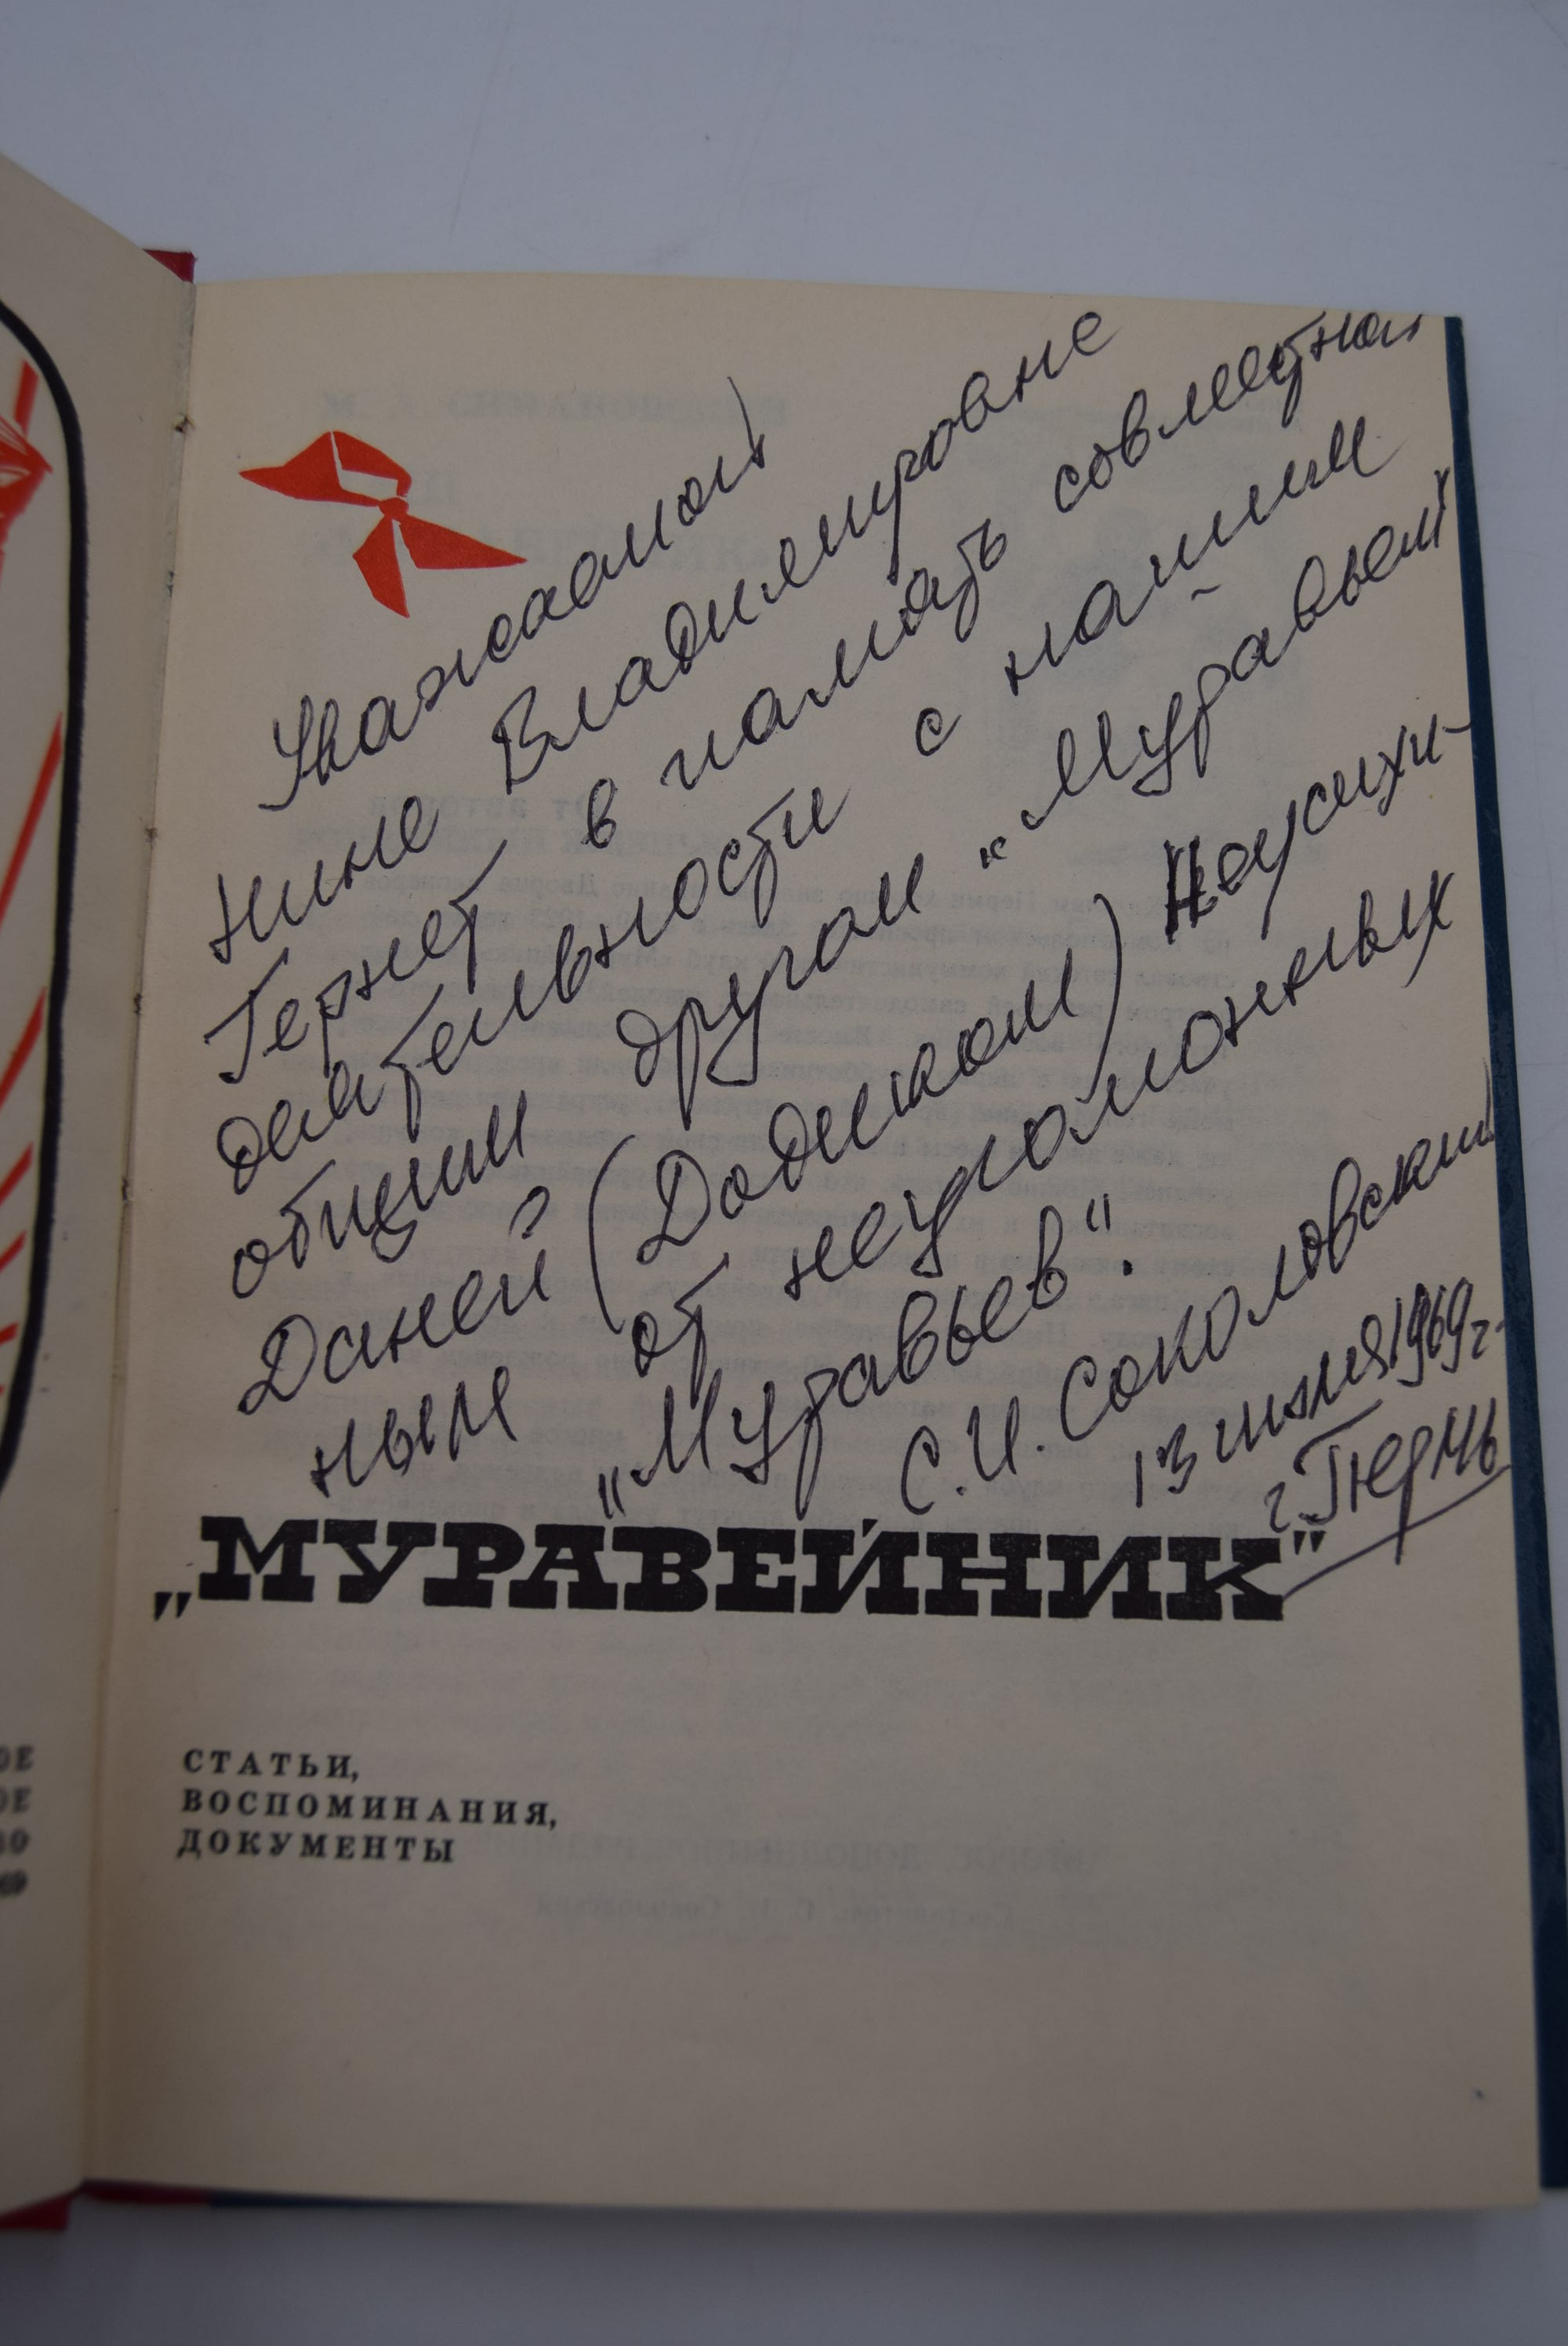 Уважаемой
Нине Владимировне
Гернет в память совместной
деятельности с нашим
общим другом "Муравьем
Даней" (Додиком) Наусихи-
ным от неугомонных
„Муравьев".
С.И. Соколовский
13 июля 1969 г.
г. Пермь
„МУРАВЕЙНИК"
СТАТЬИ,
ВОСПОМИНАНИЯ,
ДОКУМЕНТЫ